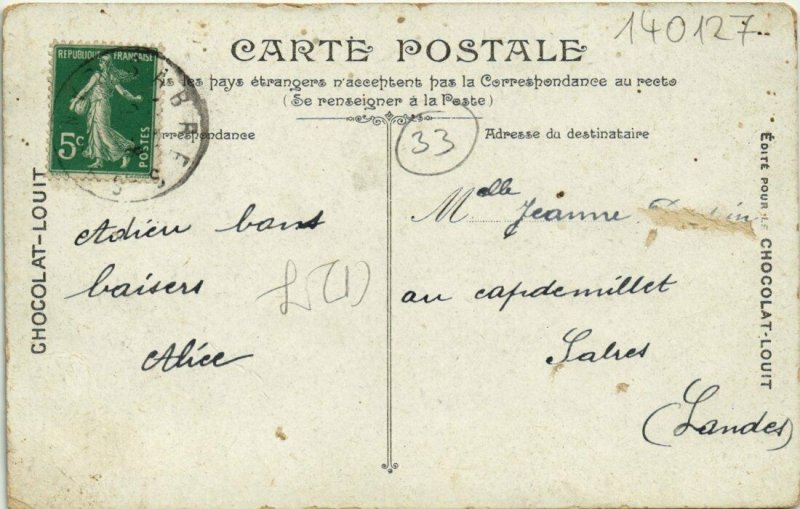 140127
CARTE POSTALE
les pays étrangers n'acceptent pas la Correspondance au recto
(Se renseigner à la Poste)
REPUBLIQUE FRANÇAISE
5c
POSTES
33
respondance
Adresse du destinataire
CHOCOLAT-LOUIT
ÉDITÉ POUR LE CHOCOLAT-LOUIT
Adieu bons
baisers
Alice
L5(1)
Melle Jeanne
au capdemillet
Sabres
(Landes)